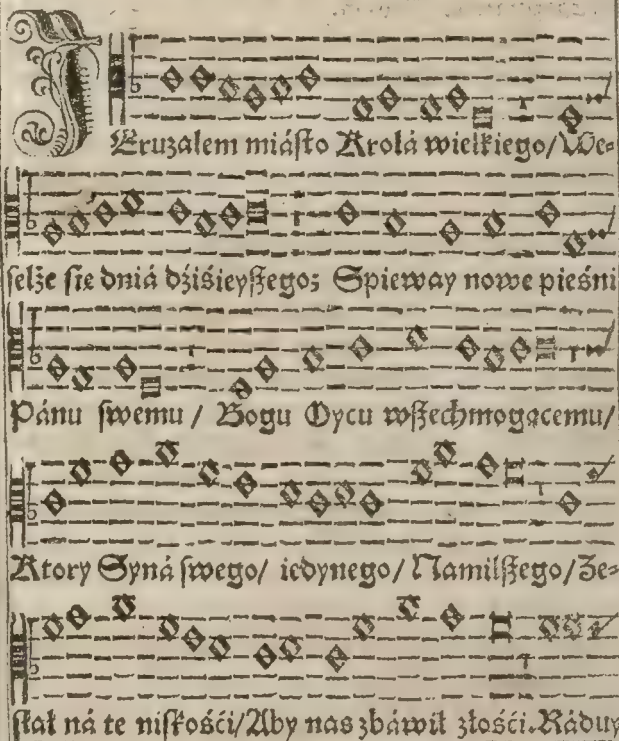 Jeruzalem miásto Krolá wielkiego/ We-
selże sie dniá dźiśieyszego; Spieway nowe pieśni
Pánu swemu / Bogu Oycu wszechmogącemu/
Ktory Syná swego/ iedynego/ Namilszego/ Ze-
słał ná te niskośći/ Aby nas zbáwił złośći. Ráduy